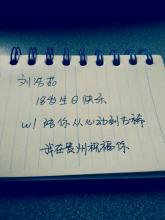 刘浩茹
18岁生日快乐
W1 陪你从心动到古稀
我在贵州祝福你